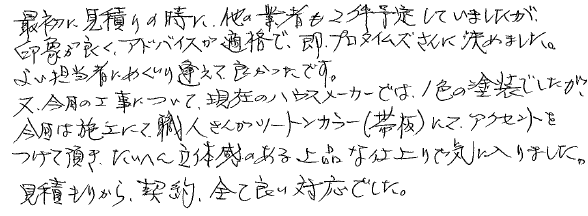 最初に見積りの時に、他の業者も2件予定していましたが、
印象が良く、アドバイスが適格で、即、プロタイムズさんに決めました。
よい担当者にめぐり逢えて良かったです。
又、今回の工事について、現在のハウスメーカーでは、1色の塗装でしたが、
今回は施工にて、職人さんがツートンカラー(帯板)にて、アクセントを
つけて頂き、たいへん立体感のある上品な仕上りで気に入りました。
見積もりから、契約、全て良い対応でした。